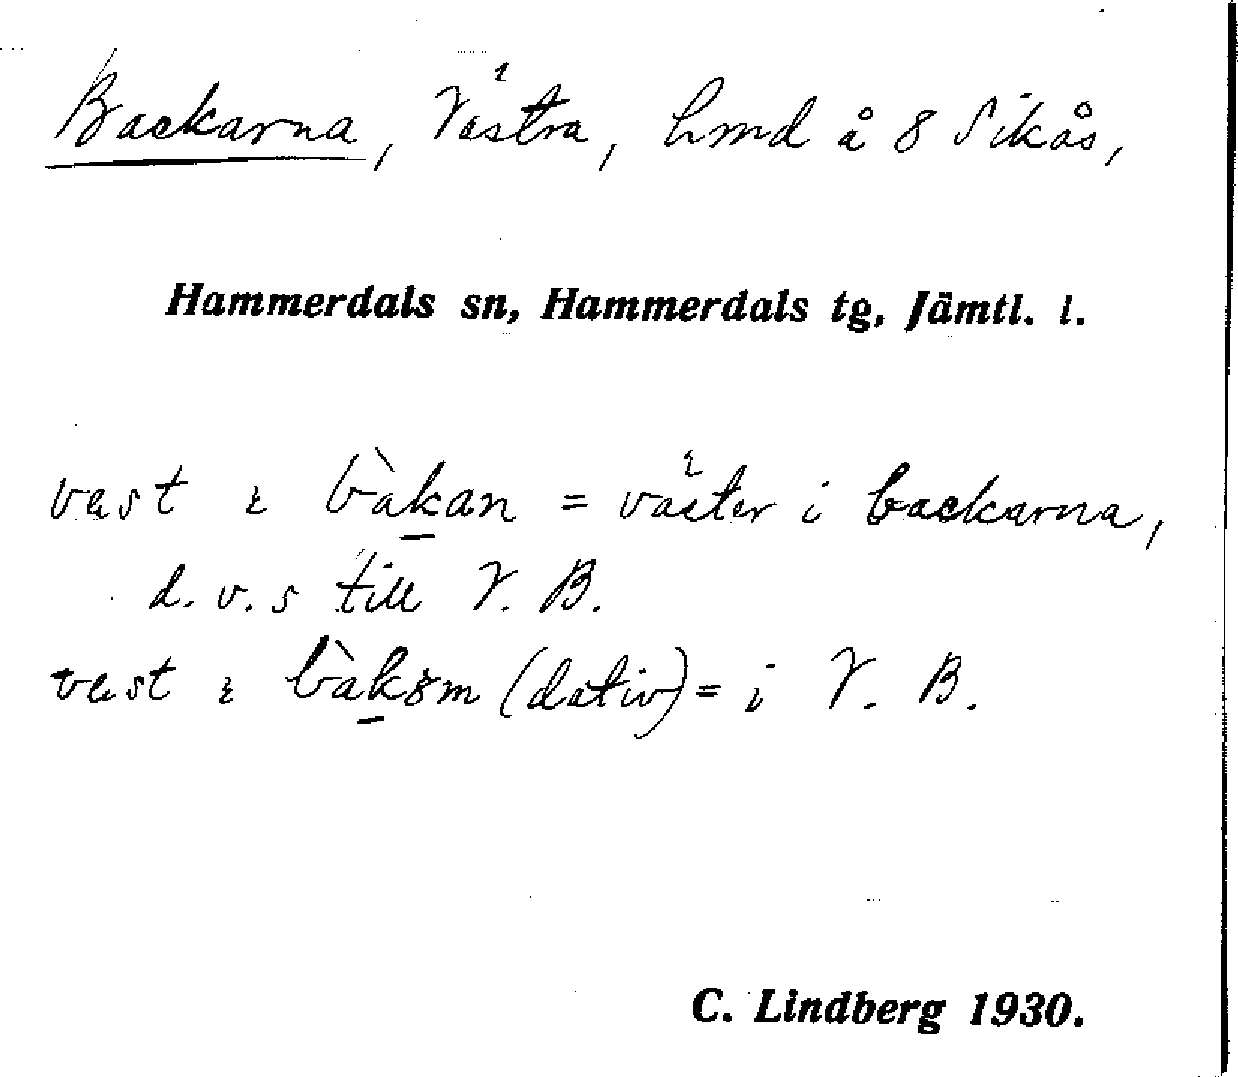 Backarna, Västra, hmd å 8 Sikås,
Hammerdals sn, Hammerdals tg, Jämtl. l.
vast ɩ bàkan = väster i backarna,
d.v.s till V. B.
vast ɩ bàkom (dativ) = i V. B.
C. Lindberg 1930.